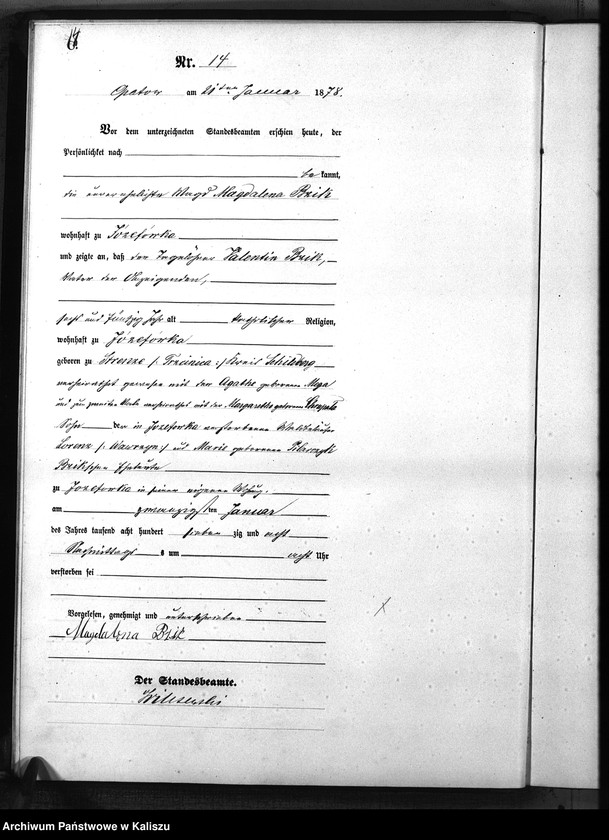 14
Nr. 14
Opatow am 21ten Januar 1878.
Vor dem unterzeichneten Standesbeamten erschien heute, der
Persönlichket nach
be kannt,
die unverehelichte Magd Magdalena Bzik
wohnhaft zu Józefówka
und zeigte an, daß der Valentin Bzik,
Vater der Anzeigenden,
sechs und fünfzig Jahr alt katholischer Religion,
wohnhaft zu Józefówka
geboren zu Strenze /: Trzcinica :/ Kreis Schildberg
verheirathet gewesen mit der Agathe geborenen Moga
und zum zweiten Male verheirathet mit der Margarethe geborenen
Sohn der in Jozefowka verstorbenen
Lorenz /: Wawrzyn :/ und Marie geborenen
Bzikschen Eheleute
zu Jozefowka in seiner eigenen Wohnung
am zwanzigsten Januar
des Jahres tausend acht hundert sieben zig und acht
Nachmittags um acht Uhr
verstorben sei
Vorgelesen, genehmigt und unterschrieben
Magdalena Bzik
Der Standesbeamte.
Archiwum Państwowe w Kaliszu